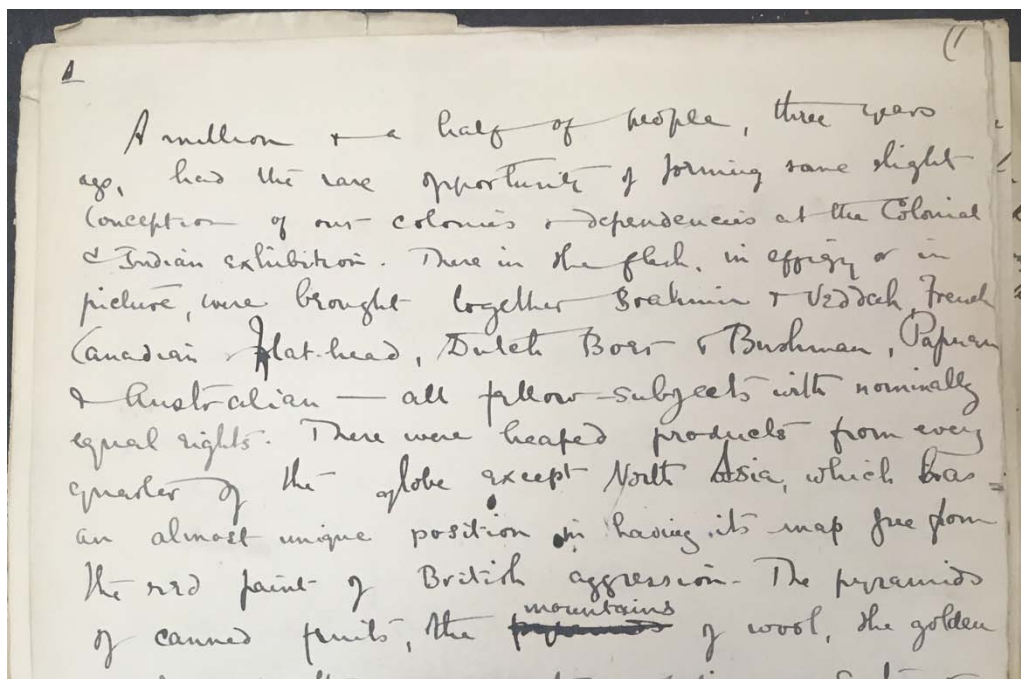 A million & a half of people, three years
ago, had the rare opportunity of forming some slight
conception of our colonies & dependencies at the Colonial
& Indian exhibition. There in the flesh, in effigy or in
picture, were brought together Brahmin & Veddah, French
Canadian & Flat-head, Dutch Boer & Bushman, Papuan
& Australian — all fellow-subjects with nominally
equal rights. There were heaped products from every
quarter of the globe except North Asia, which has
an almost unique position in having its map free from
the red paint of British aggression. The pyramids
of canned fruits, the mountains of wool, the golden